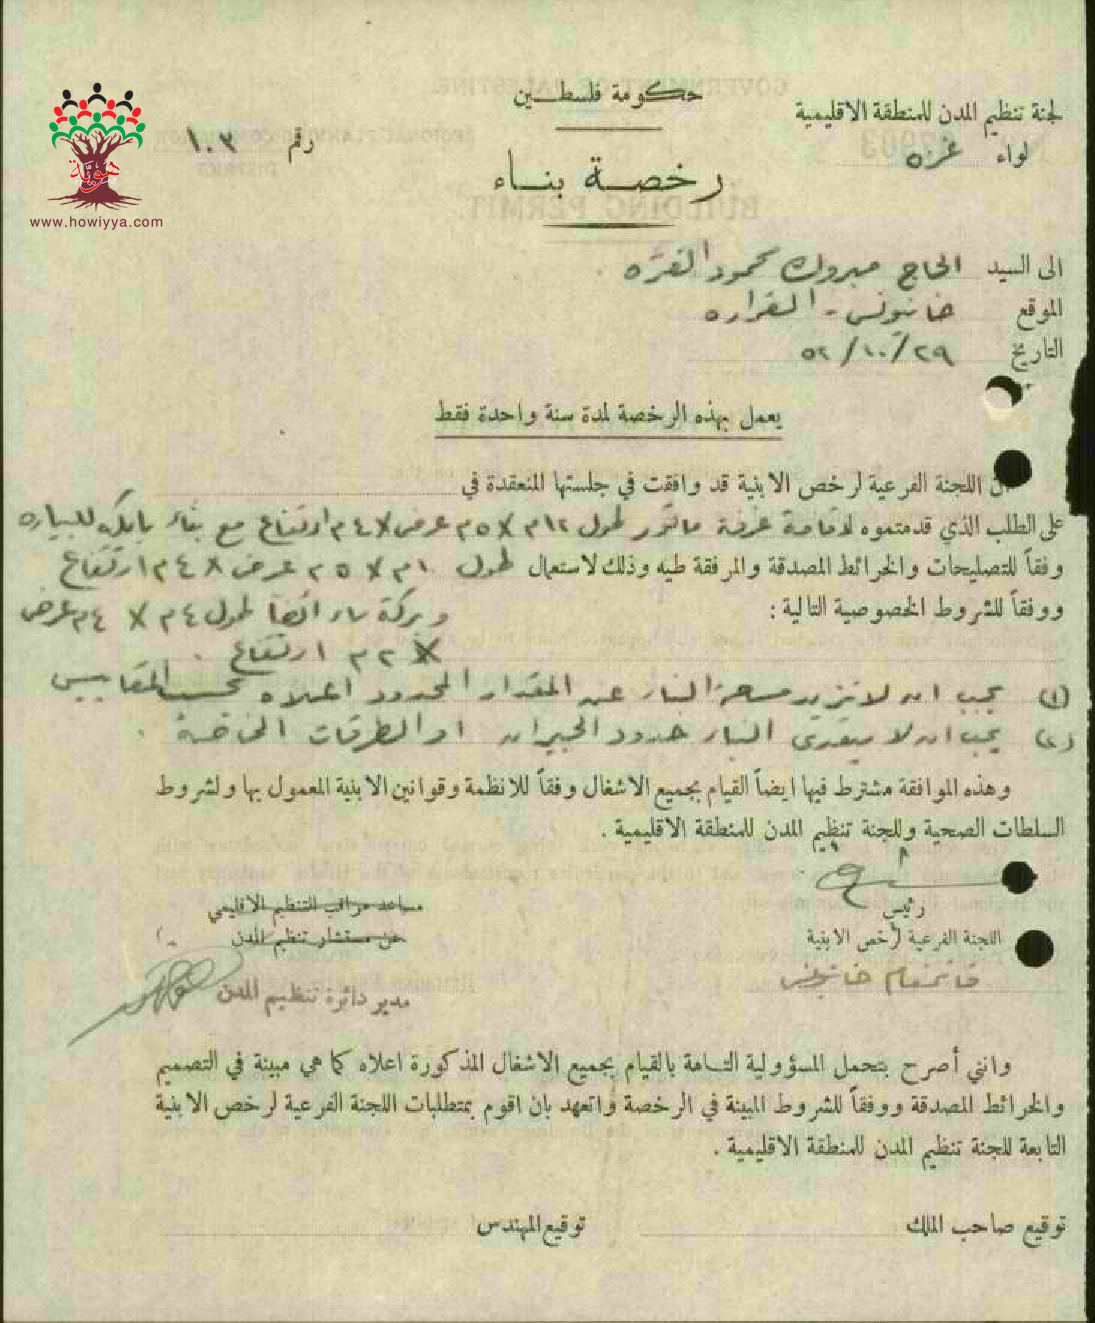 حكومة فلسطين
لجنة تنظيم المدن للمنطقة الاقليمية
لواء غزه
رقم ١٠٣
رخصة بناء
هوية
www.howiyya.com
الى السيد الحاج مبروك محمود الفره
الموقع خانيونس - القراره
التاريخ ٢٩/١٠/٥٢
يعمل بهذه الرخصة لمدة سنة واحدة فقط
ان اللجنة الفرعية لرخص الابنية قد وافقت في جلستها المنعقدة في
على الطلب الذي قدمتموه لاقامة غرفة ماتور طول ١٢م X ٥م عرض X ٤م ارتفاع مع بناء بايكه للسياره
وفقاً للتصليحات والخرائط المصدقة والمرفقة طيه وذلك لاستعمال طول ١٠م X ٥م عرض X ٤م ارتفاع
ووفقاً للشروط الخصوصية التالية :
وبركة ماء ايضا طول ٤م X ٤م عرض
X ٢م ارتفاع .
(١) يجب ان لا تزيد مساحة البناء عن المقدار المحدود اعلاه حسب المقاييس
(٢) يجب ان لا يتعدى البناء حدود الجيران او الطرقات الخاصة .
وهذه الموافقة مشترط فيها ايضاً القيام بجميع الاشغال وفقاً للانظمة وقوانين الابنية المعمول بها ولشروط
السلطات الصحية وللجنة تنظيم المدن للمنطقة الاقليمية .
رئيس
اللجنة الفرعية لرخص الابنية
قائمقام خانيونس
مساعد مراقب التنظيم الاقليمي
عن مستشار تنظيم المدن
مدير دائرة تنظيم المدن
وانني أصرح بتحمل المسؤولية التامة بالقيام بجميع الاشغال المذكورة اعلاه كما هي مبينة في التصميم
والخرائط المصدقة ووفقاً للشروط المبينة في الرخصة واتعهد بان اقوم بمتطلبات اللجنة الفرعية لرخص الابنية
التابعة للجنة تنظيم المدن للمنطقة الاقليمية .
توقيع صاحب الملك
توقيع المهندس